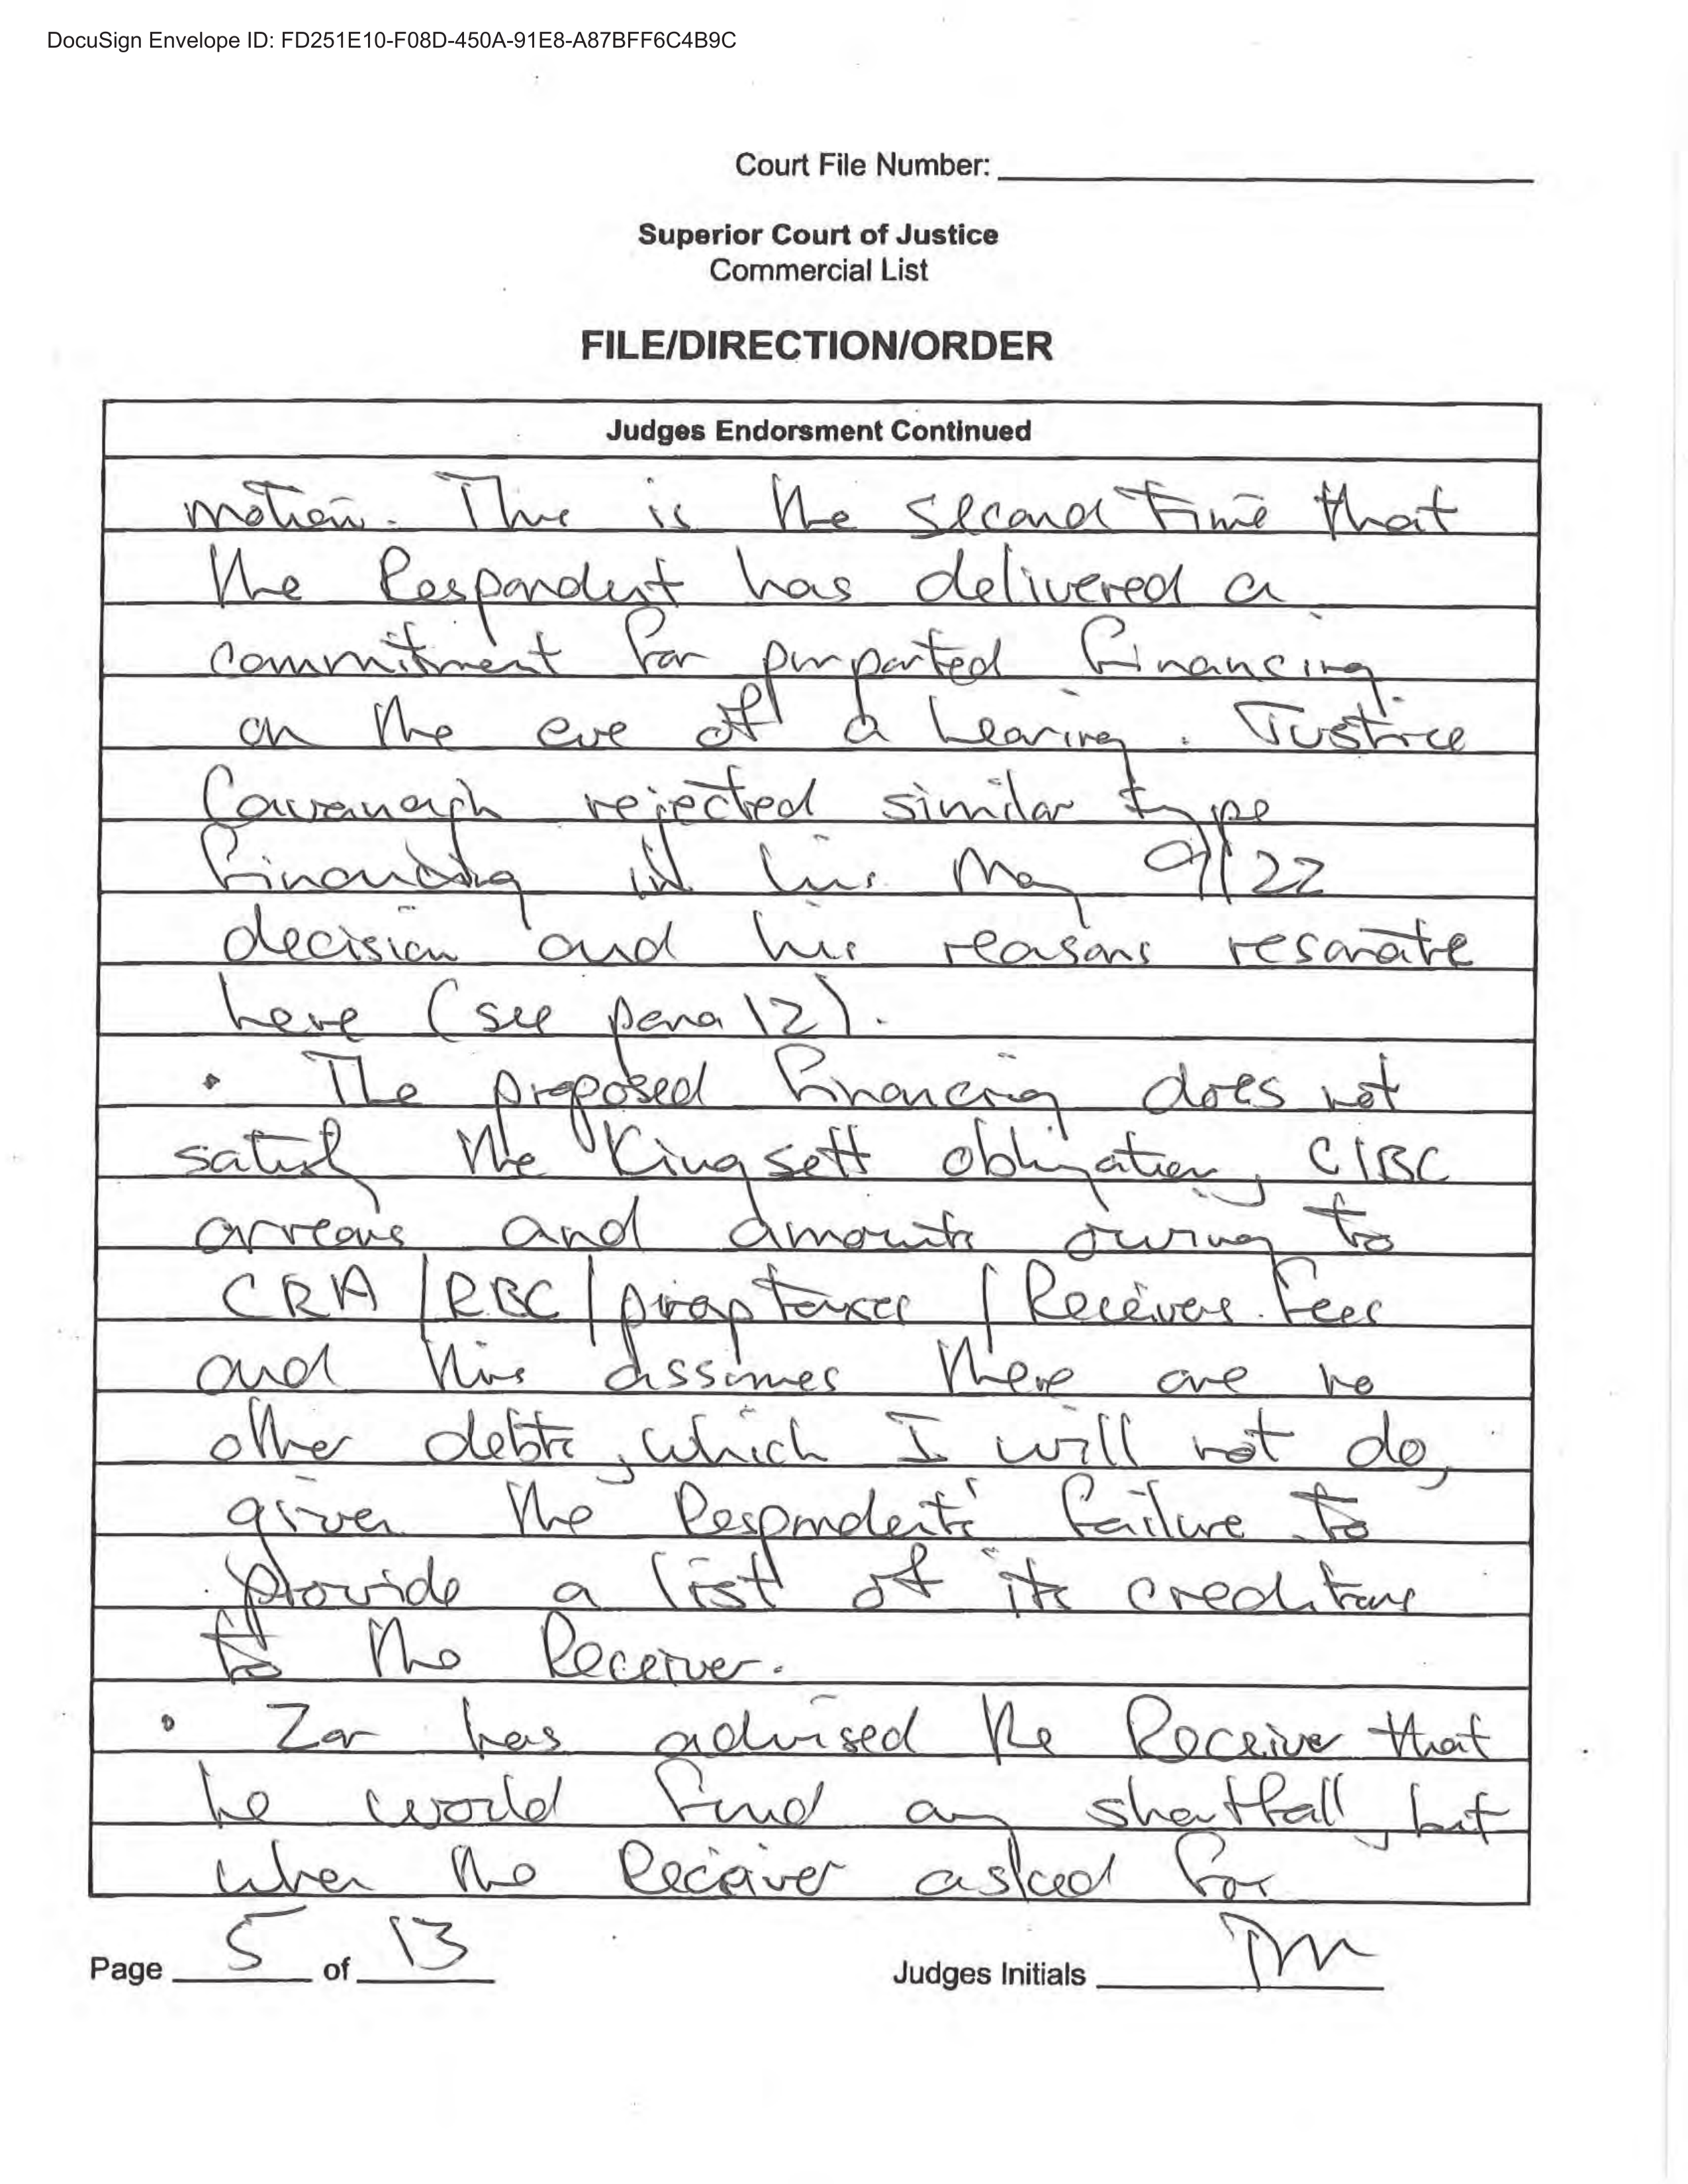 DocuSign Envelope ID: FD251E10-F08D-450A-91E8-A87BFF6C4B9C
Court File Number:
Superior Court of Justice
Commercial List
FILE/DIRECTION/ORDER
Judges Endorsment Continued
motion. This is the second time that
the Respondent has delivered a
commitment for purported financing
on the eve of a hearing. Justice
Cavanagh rejected similar type
financing in his May 9/22
decision and his reasons resonate
here (see para 12).
• The proposed financing does not
satisfy the Kingsett obligation, CIBC
arrears and amounts owing to
CRA/RBC/prop taxes/Receivers fees
and this assumes there are no
other debts, which I will not do,
given the Respondents' failure to
provide a list of its creditors
to the Receiver.
• Zar has advised the Receiver that
he would fund any shortfall, but
when the Receiver asked for
Page 5 of 13
Judges Initials